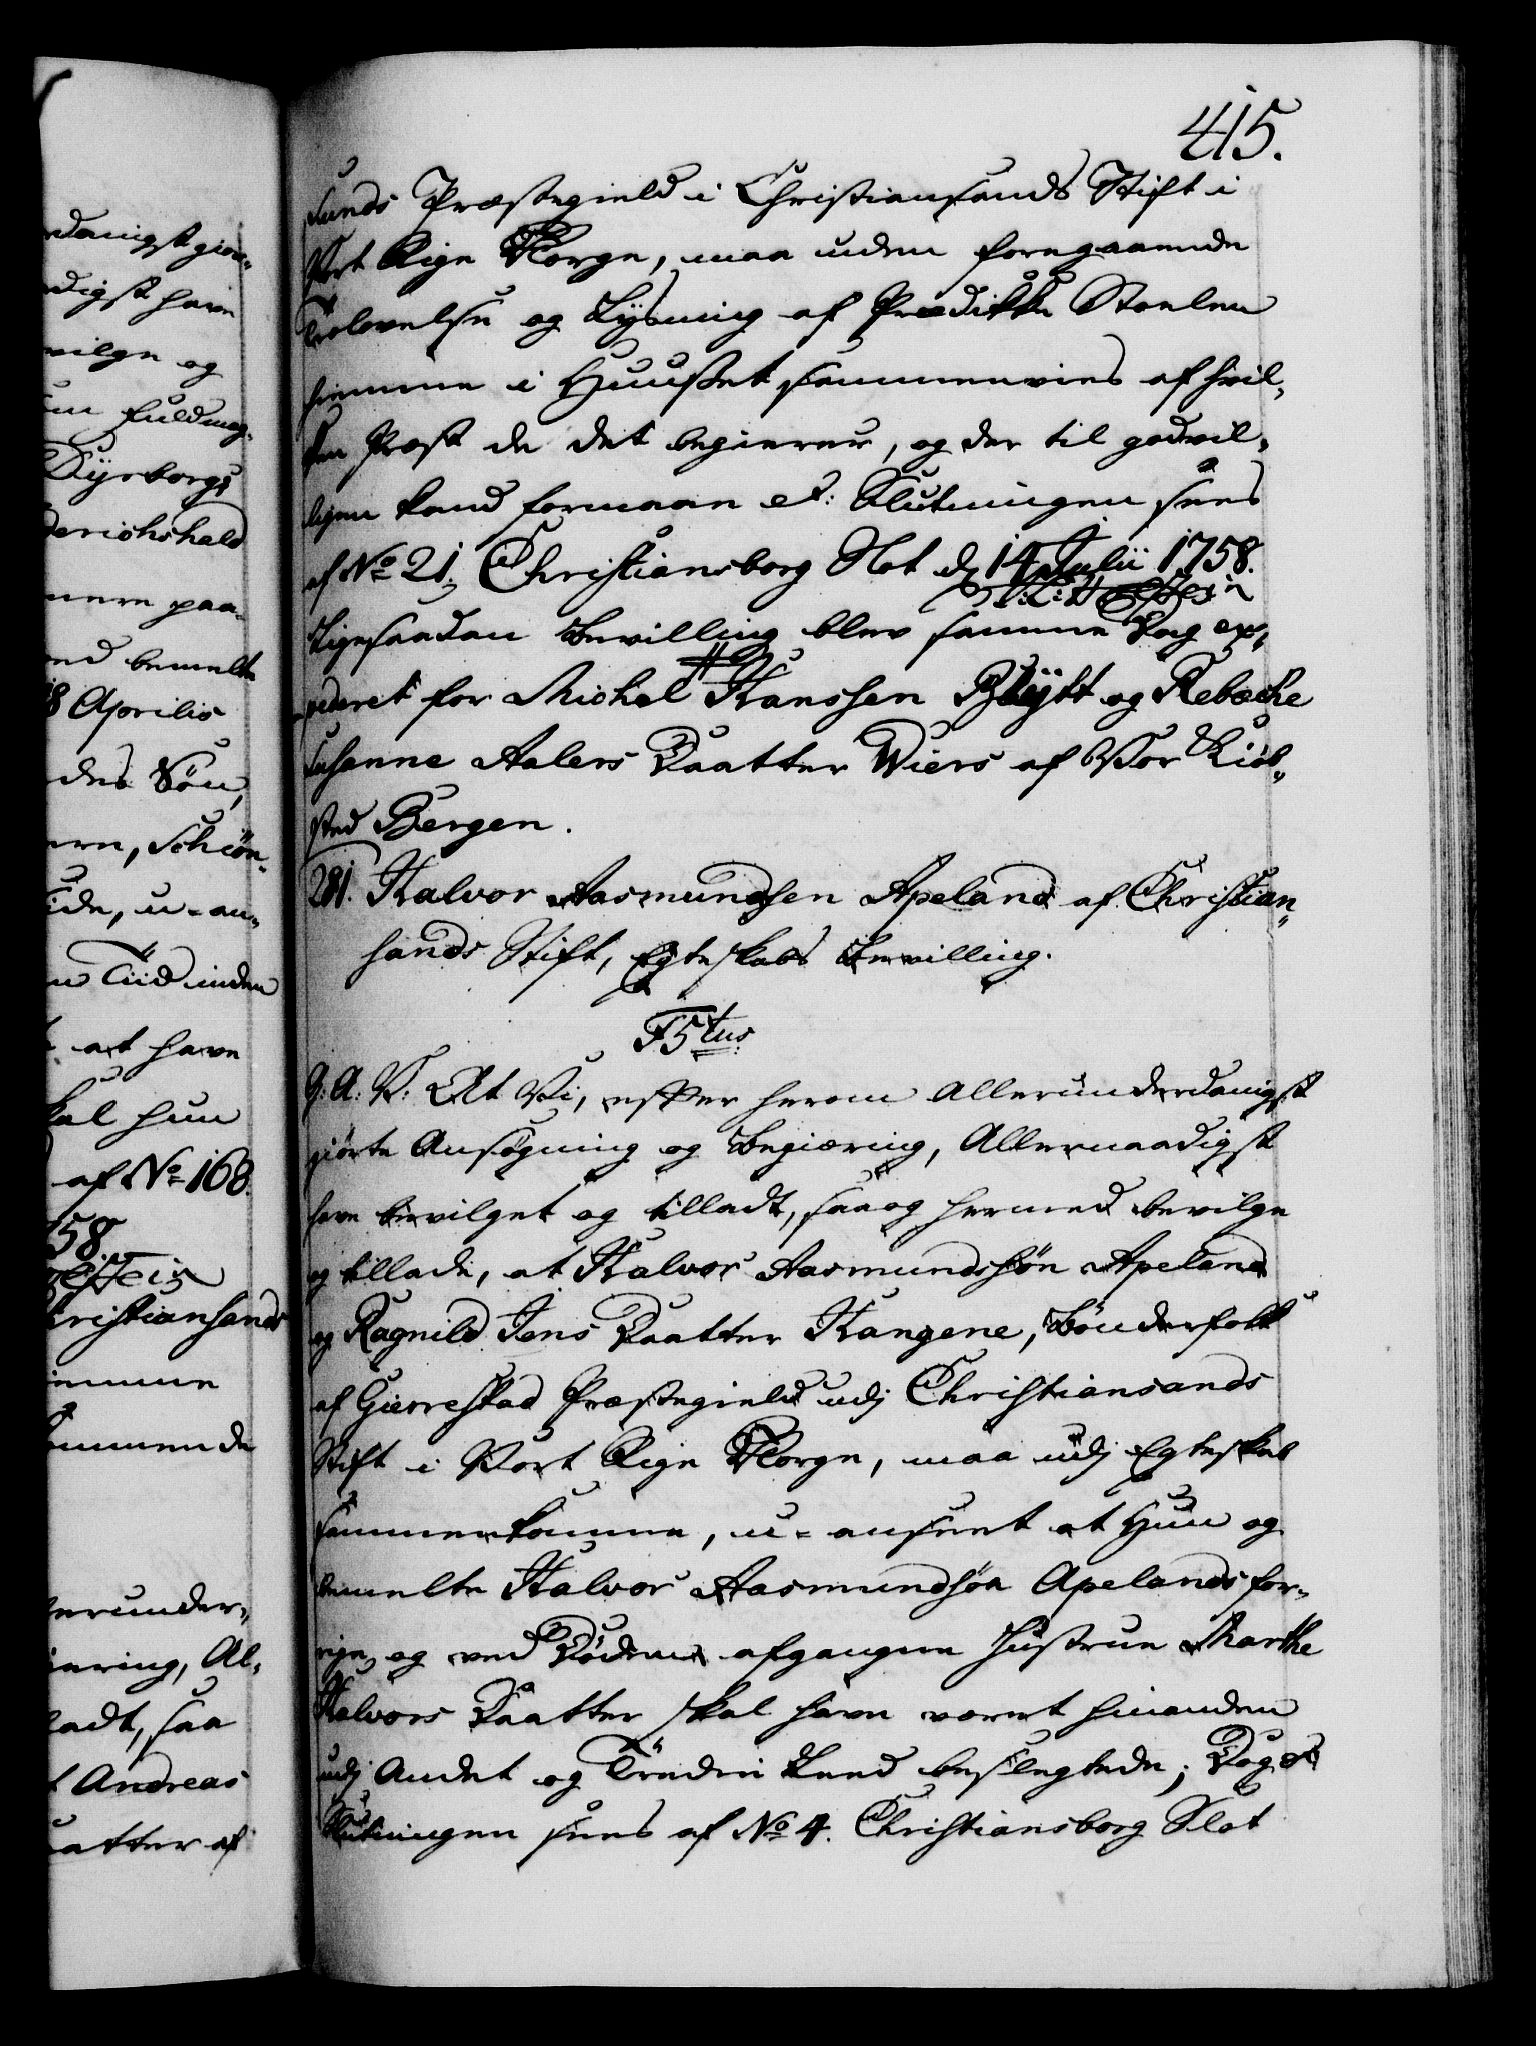 415.
Lunds Præstegield i Christiansands Stift i
Vort Rige Norge, maa uden foregaaende
Trolovelse og Lysning af Prædikke Stoelen
hiemme i Huuset sammenvies af hvil„
ken Præst de det begierer, og der til godvil„
ligen kand formaae etc: Slutningen sees
af No 21. Christiansborg Slot d 14 Julii 1758.
Ligesaadan Bevilling blev samme Dag ex„
pederet for Michel Hanssen Blÿtt og Rebecke
Susanne Alers Daatter Wiers af Vor Kiöb„
sted Bergen.
281. Halvor Aasmundsen Apeland af Christian„
sands Stift, Egteskabs Bevilling.
F5tus
G: A: V: At Vi, efter herom Allerunderdanigst
giorte Ansøgning og Begiæring, Allernaadigst
have bevilget og tilladt, saa og hermed bevilge
og tillade, at Halvor Aasmundssøn Apeland
og Ragnild Jens Daatter Hangene, Bönderfolk
af Gierrestad Præstegield udj Christiansands
Stift i Vort Rige Norge, maa udj Egteskab
sammenkomme, u-anseet at Hun og
bemelte Halvor Aasmundsøn Apelands for„
rige og ved Døden afgangne Hustrue Marthe
Halvors Daatter skal have været hinanden
udj Andet og Tredie Leed beslegtede; Dog etc
Slutningen sees af No 4. Christiansborg Slot
rdanigst giør„
digst have
vilge og
Fuldmæg„
Dyrborg,
derichshald
mere paa„
ved bemelte
18 Aprilis
des Søn,
ern, Schiön„
ide, u-an„
Tiid inden
at have
kal hun
af No 168.
58.
Christiansands
iemme
ommende
erunder„
iæring, Al„
ladt, saa
Andreas
aatter af